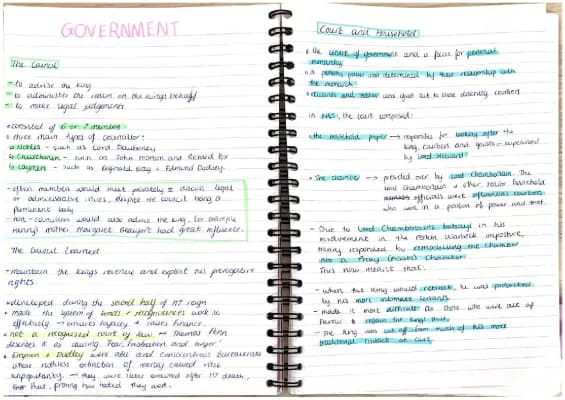 GOVERNMENT
The Council
- to advise the king
- to administer the realm on the kings behalf
- to make legal judgements
• consisted of 6 or 7 members
• three main types of councillor:
Nobles - such as Lord Daubeney
Churchmen - such as John Morton and Richard Fox
Laymen - such as Reginald Bray + Edmund Dudley.
- often members would meet privately to discuss legal
or administrative issues, despite the council being a
permanent body
- non-councillors would also advise the king. For example,
Henry's mother Margaret Beaufort had great influence.
The Council Learned
- maintain the king's revenue and exploit his prerogative
rights.
• developed during the second half of H7 reign
• made the system of bonds + recognisances work so
effectively → ensures loyalty + raises finance.
• not a recognised court of law → Thomas Penn
describes it as causing 'fear, frustration and anger'
• Empson + Dudley were able and conscientious bureaucrats
whose ruthless extraction of money caused
unpopularity → they were later executed after H7 death,
that, proving how hated they were.
Court and Household
• the centre of government and a focus for personal
monarchy
• a persons power was determined by their relationship with
the monarch
• rewards and status was given out to those deserving, courtiers
In 1485, the court comprised:
• the household proper → responsible for looking after the
king, courtiers and guests - supervised
by Lord Steward
• The chamber → presided over by Lord Chamberlain. The
lord chamberlain + other senior household
officials were influential courtiers
who were in a position of power and trust.
- Due to Lord Chamberlain's betrayal in his
involvement in the Perkin Warbeck imposture,
Henry responded by remodelling the chamber
into a Privy (private) Chamber.
This now meant that:
- when the king would retreat, he was protected
by his more intimate servants
- made it more difficult for those who were out of
favour to regain the kings trust
- the king was cut off from much of his more
traditional contacts at court